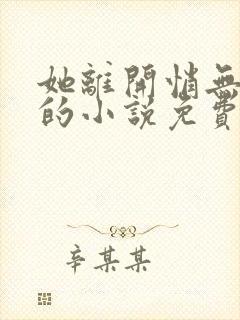 她離開悄無
的小說免費
辛某某